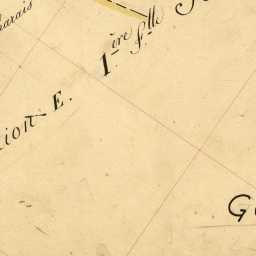 arais
1ère flle
tion E.
G